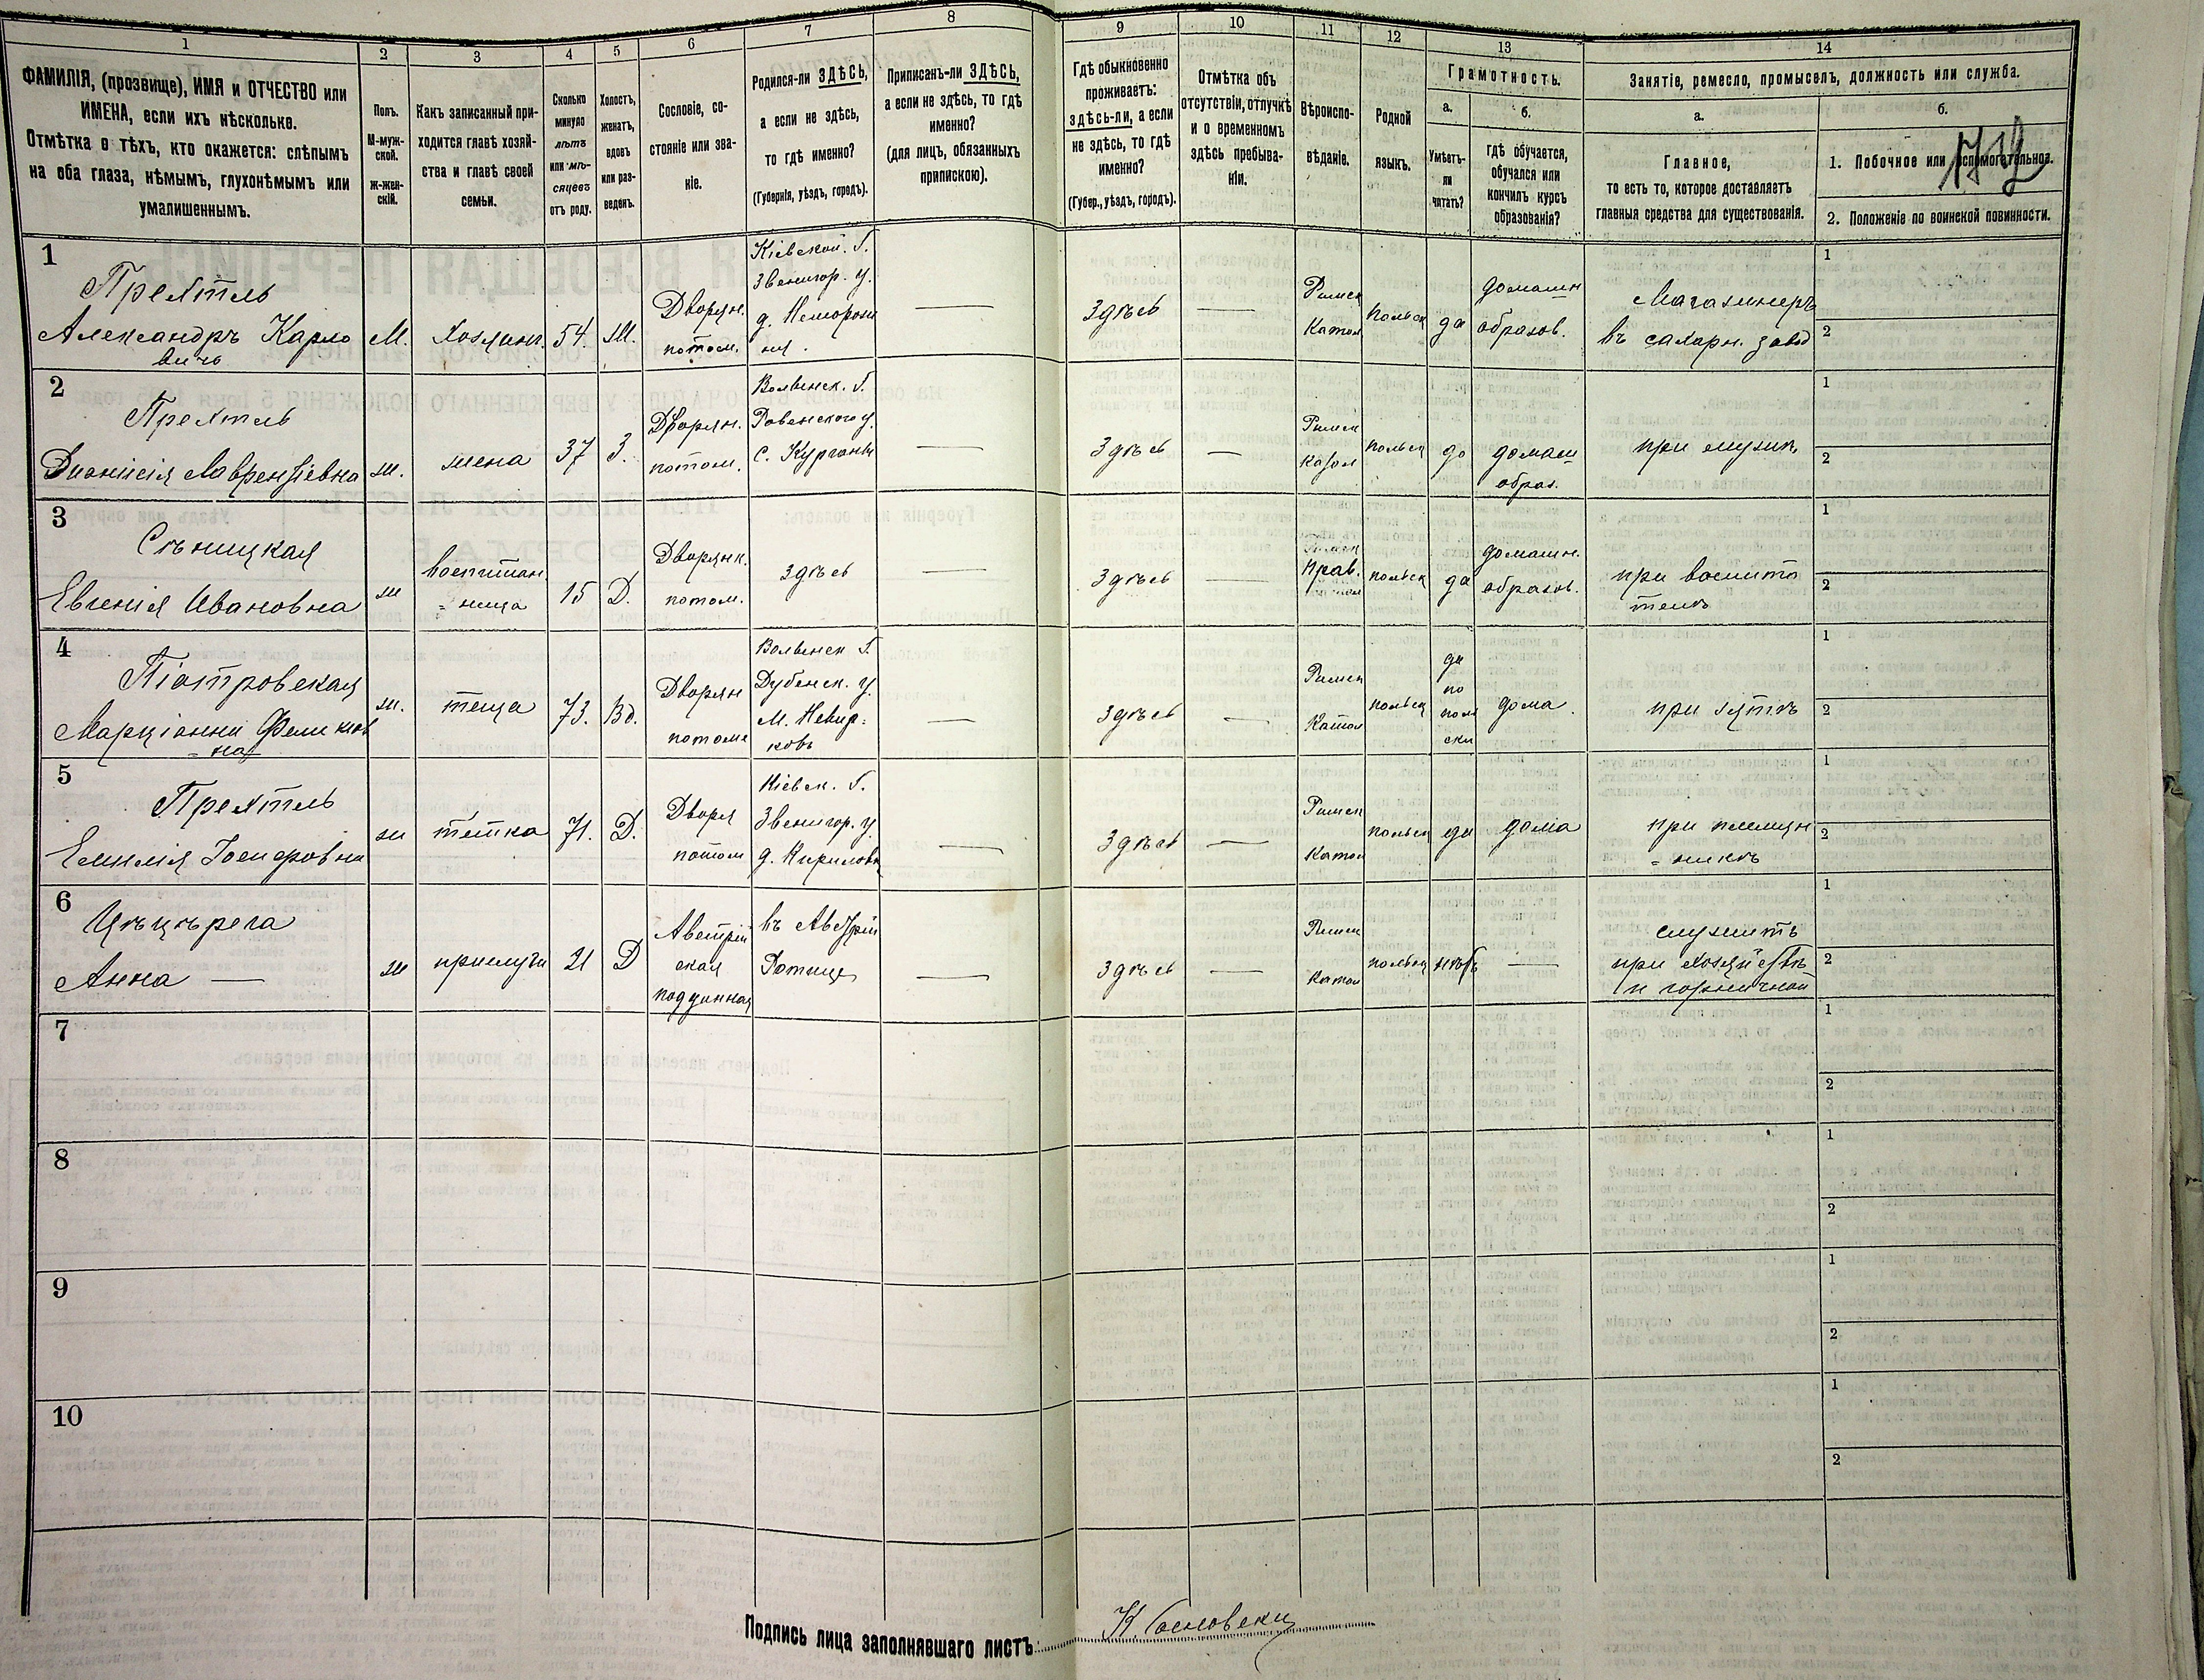 1
2
3
4
5
6
7
8
9
10
11
12
13
14
ФАМИЛІЯ, (прозвище), ИМЯ и ОТЧЕСТВО или
ИМЕНА, если ихъ нѣсколько.
Отмѣтка о тѣхъ, кто окажется: слѣпымъ
на оба глаза, нѣмымъ, глухонѣмымъ или
умалишеннымъ.
Полъ.
М-муж-
ской.
ж-жен-
скій.
Какъ записанный при-
ходится главѣ хозяй-
ства и главѣ своей
семьи.
Сколько
минуло
лѣтъ
или мѣ-
сяцевъ
отъ роду.
Холостъ,
женатъ,
вдовъ
или раз-
веденъ.
Сословіе, со-
стояніе или зва-
ніе.
Родился-ли ЗДѢСЬ,
а если не здѣсь,
то гдѣ именно?
(Губернія, уѣздъ, городъ).
Приписанъ-ли ЗДѢСЬ,
а если не здѣсь, то гдѣ
именно?
(для лицъ, обязанныхъ
припискою).
Гдѣ обыкновенно
проживаетъ:
здѣсь-ли, а если
не здѣсь, то гдѣ
именно?
(Губер., уѣздъ, городъ).
Отмѣтка объ
отсутствіи, отлучкѣ
и о временномъ
здѣсь пребыва-
ніи.
Вѣроиспо-
вѣданіе.
Родной
языкъ.
Грамотность.
а.
Умѣетъ-
ли
читать?
б.
гдѣ обучается,
обучался или
кончилъ курсъ
образованія?
Занятіе, ремесло, промыселъ, должность или служба.
а.
Главное,
то есть то, которое доставляетъ
главныя средства для существованія.
б.
1. Побочное или вспомогательное.
2. Положеніе по воинской повинности.
1
Прехтль
Александръ Карло
вичъ
М.
хозяинъ.
54.
Ж.
Дворян.
потом.
Кіевской. Г.
Звенигор. у.
Здѣсь
Римск
Катол
польск
да
домашн
образов.
Магазинеръ
въ сахарн. завод
1
2
2
Прехтль
Діонисія Лаврентіевна
ж.
жена
37
З.
Дворян.
потом.
Волынск. Г.
Ровенского у.
с. Курганы
Здѣсь
Римск
Катол
польск
да
домаш
образ.
при мужѣ
1
2
3
Сѣницкая
Евгенія Ивановна
ж
воспитан
=ница
15
Д.
Дворянк.
потом.
здѣсь
здѣсь
Прав.
польск
да
домашн.
образов.
при воспита
телѣ
1
2
4
Піотровская
Марціанна Феликсов
=на
ж.
теща
73.
Вд.
Дворян
потом
Волынск Г.
Дубенск. у.
здѣсь
Римск
Катол
польск
да
по
поль
ски
дома.
при зятѣ
1
2
5
Прехтль
Емилія Іосифовна
ж
тетка
71.
Д.
Дворя
потом
Кіевск. Г.
Звенигор. у
д. Кириловк
здѣсь
Римск
Катол
польск
да
дома
при племян
=никѣ
1
2
6
Анна —
ж
прислуга
21
Д
Австрій
ская
подданная
въ Австріи
здѣсь
Римск
Катол
польск
нѣтъ
служитъ
при хозяйствѣ
и горничной
1
2
7
1
2
8
1
2
9
1
2
10
1
2
Подпись лица заполнявшаго листъ